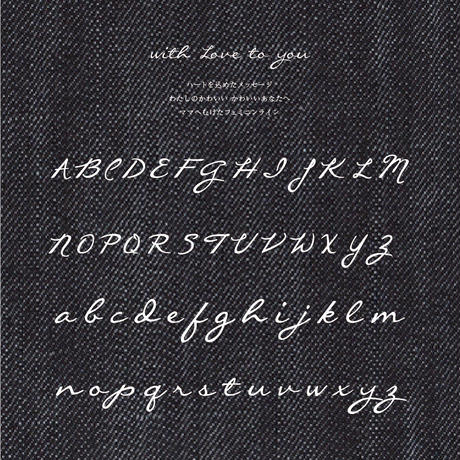 with Love to you
ハートを込めたメッセージ
わたしのかわいい かわいいあなたへ
ママへむけたフェミニンライン
ABCDEFGHIJKLM
NOPQRSTUVWXYZ
abcdefghijklm
nopqrstuvwxyz